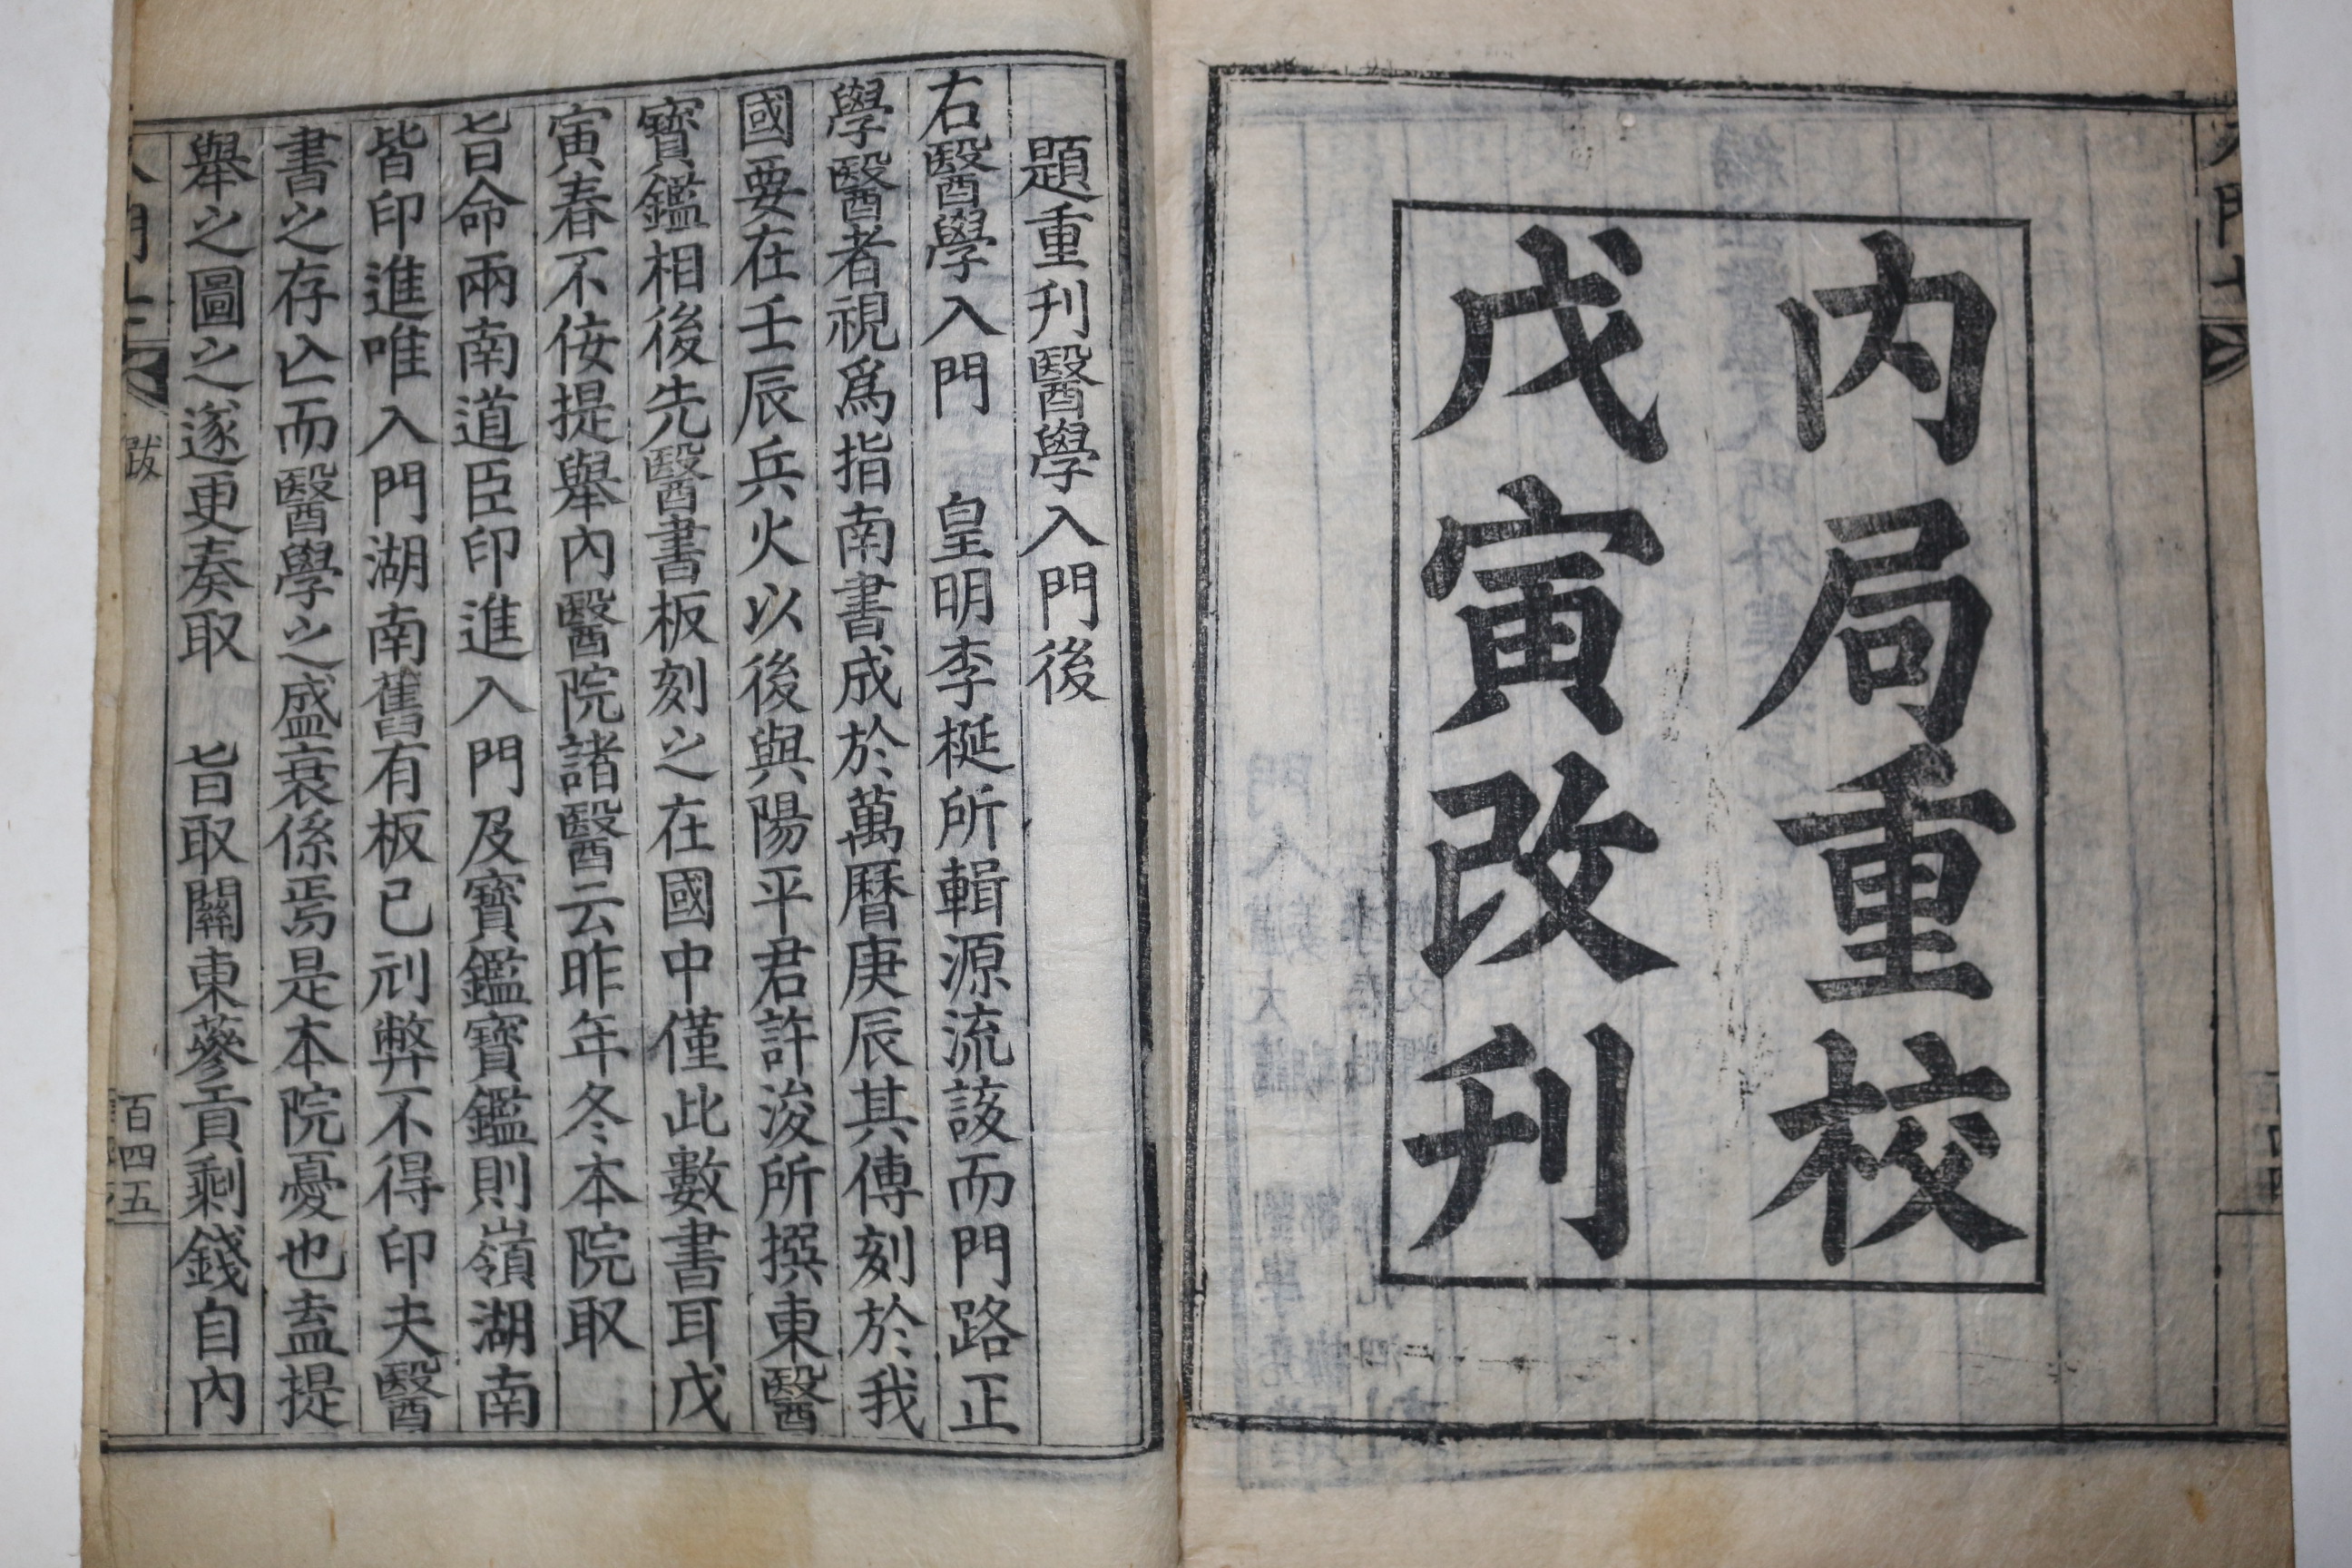 内局重校
戊寅改刋
題重刋醫學入門後
右醫學入門 皇明李梴所輯源流該而門路正
學醫者視爲指南書成於萬曆庚辰其傳刻於我
國要在壬辰兵火以後與陽平君許浚所撰東醫
寶鑑相後先醫書板刻之在國中僅此數書耳戊
寅春不侫提舉內醫院諸醫云昨年冬本院取
旨命兩南道臣印進入門及寶鑑寶鑑則嶺湖南
皆印進唯入門湖南舊有板已刓弊不得印夫醫
書之存亾而醫學之盛衰係焉是本院憂也盍提
舉之圖之遂更奏取 旨取關東蔘貢剩錢自內
跋
百四五